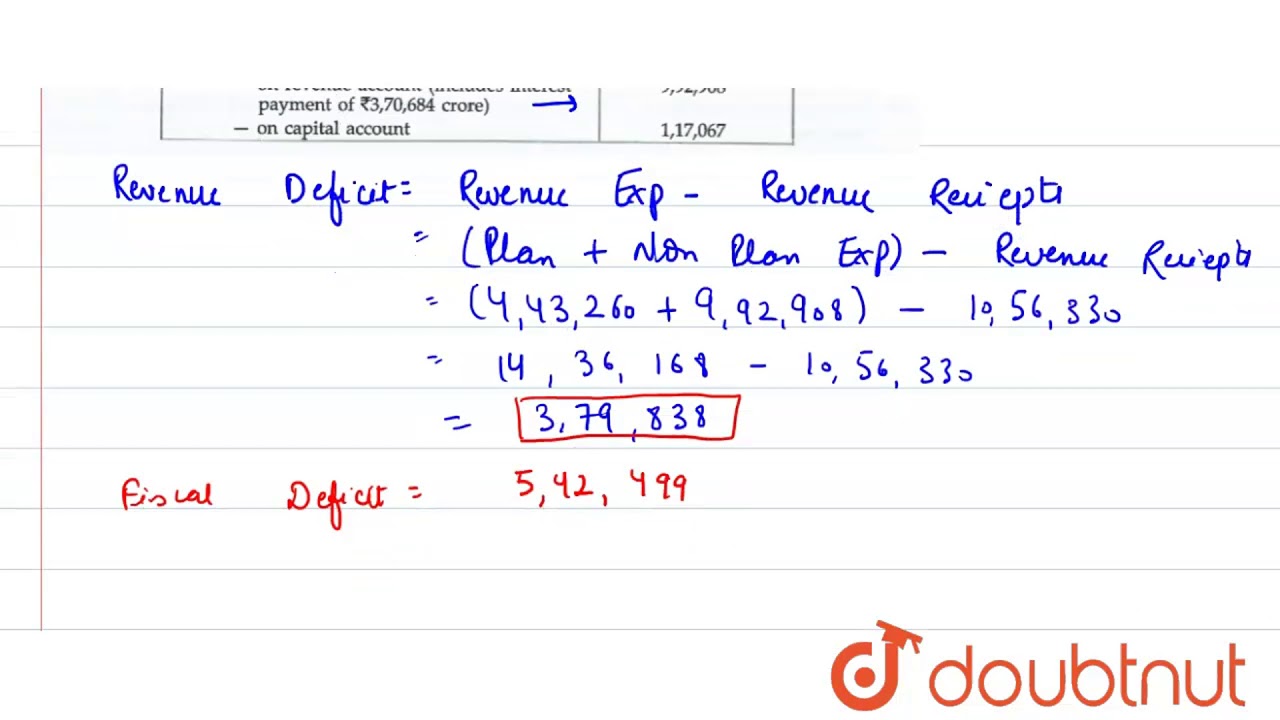 payment of ₹3,70,684 crore) →
— on capital account 1,17,067
Revenue Deficit = Revenue Exp - Revenue Reciepts
= (Plan + Non Plan Exp) - Revenue Reciepts
= (4,43,260 + 9,92,908) - 10,56,330
= 14,36,168 - 10,56,330
= 3,79,838
Fiscal Deficit = 5,42,499
doubtnut